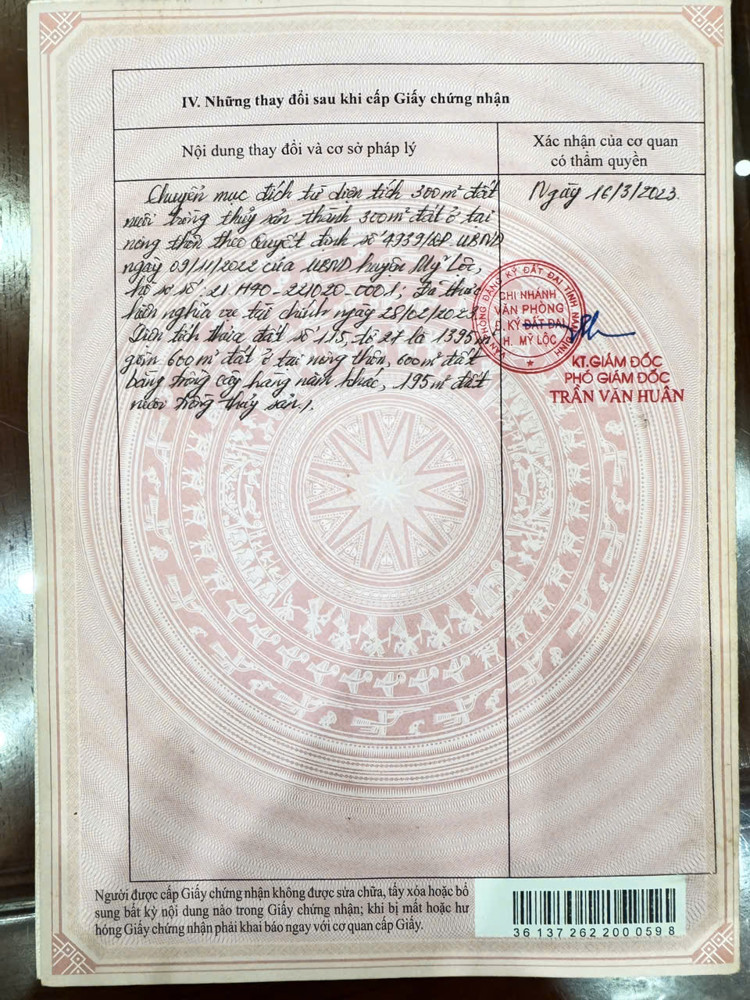 IV. Những thay đổi sau khi cấp Giấy chứng nhận
Nội dung thay đổi và cơ sở pháp lý
Xác nhận của cơ quan
có thẩm quyền
Chuyển mục đích từ diện tích 300m² đất
nuôi trồng thủy sản thành 300m² đất ở tại
nông thôn theo Quyết định số 4939/QĐ-UBND
ngày 09/11/2022 của UBND huyện Mỹ Lộc,
hồ sơ số 21.H90-221020-0001; Đã thực
hiện nghĩa vụ tài chính ngày 28/02/2023.
Diện tích thửa đất số 115, tờ 27 là 1395m²
gồm 600m² đất ở tại nông thôn, 600m² đất
bằng trồng cây hàng năm khác, 195m² đất
nuôi trồng thủy sản./.
Ngày 16/3/2023.
VĂN PHÒNG ĐĂNG KÝ ĐẤT ĐAI TỈNH NAM ĐỊNH
CHI NHÁNH
VĂN PHÒNG
Đ.KÝ ĐẤT ĐAI
H. MỸ LỘC
KT.GIÁM ĐỐC
PHÓ GIÁM ĐỐC
TRẦN VĂN HUÂN
Người được cấp Giấy chứng nhận không được sửa chữa, tẩy xóa hoặc bổ
sung bất kỳ nội dung nào trong Giấy chứng nhận; khi bị mất hoặc hư
hỏng Giấy chứng nhận phải khai báo ngay với cơ quan cấp Giấy.
36 137 262 200 0598